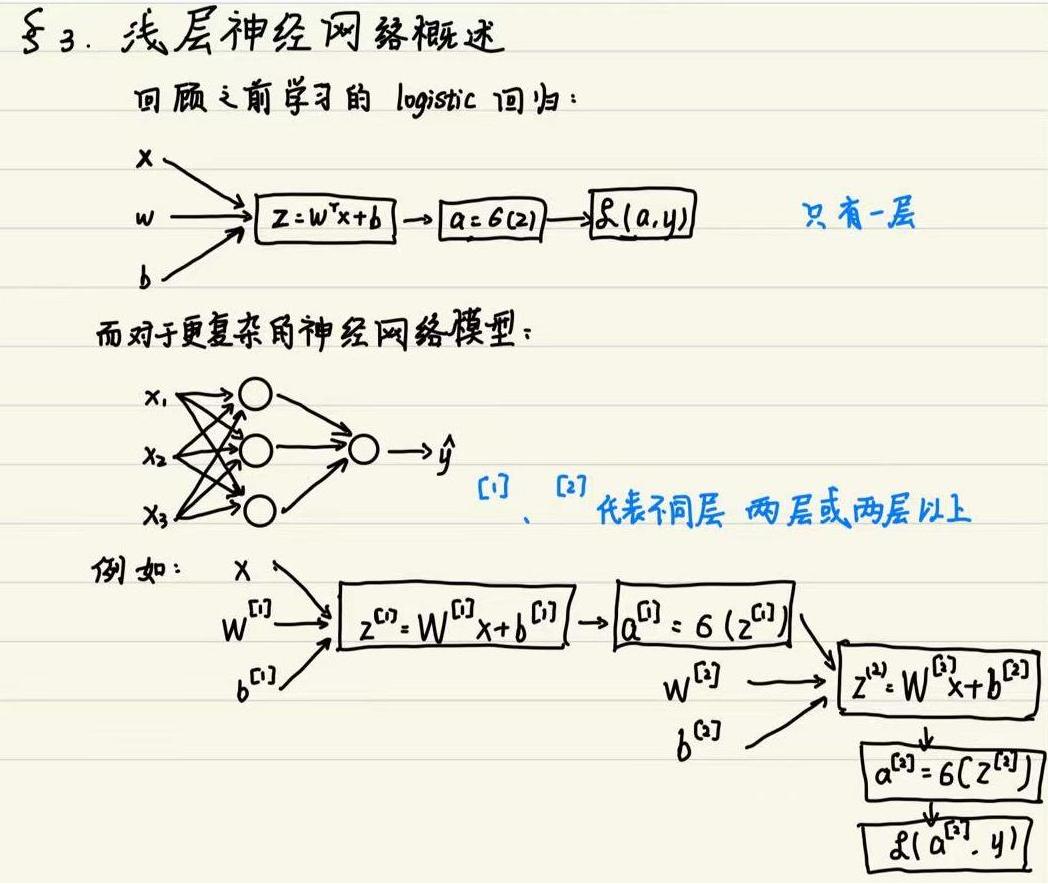 §3. 浅层神经网络概述
回顾之前学习的 logistic 回归:
x
w
b
z=wᵀx+b → a=6(z) → ℒ(a,y) 只有一层
而对于更复杂的神经网络模型:
x₁
x₂
x₃
ŷ
[1]、[2] 代表不同层 两层或两层以上
例如: x
w[1]
b[1]
z[1]=W[1]x+b[1] → a[1]=6(z[1])
w[2]
b[2]
z(2)=W[2]x+b[2]
a[2]=6(z[2])
ℒ(a[2].y)